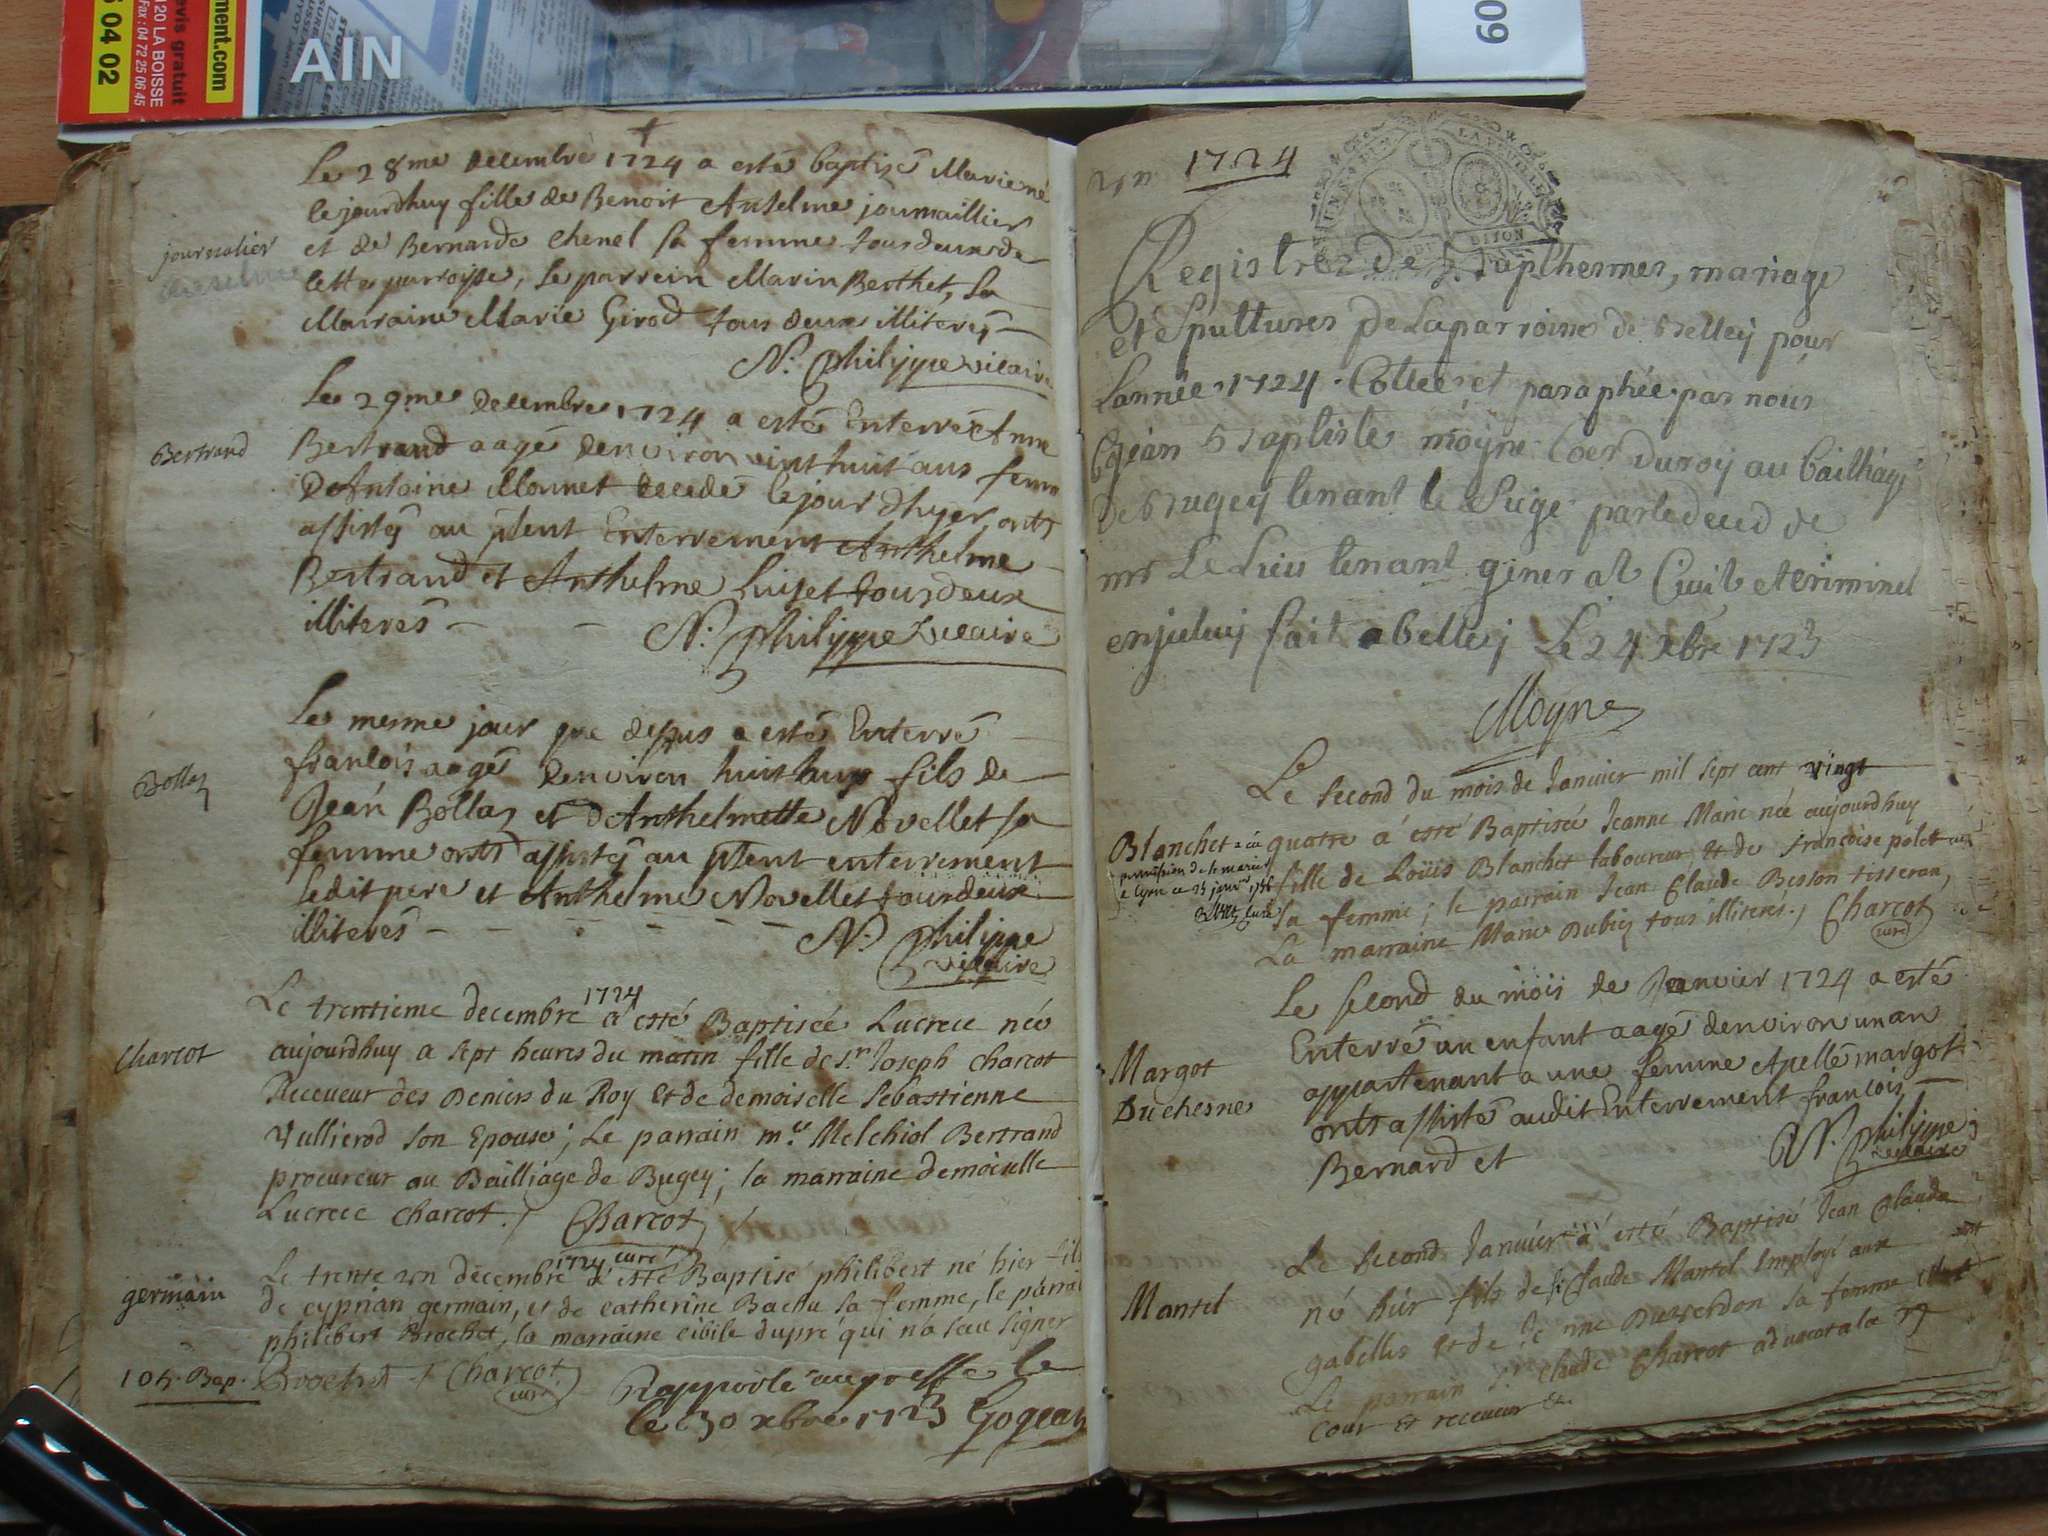 ment.com
evis gratuit
120 LA BOISSE
Fax : 04 72 25 06 45
04 02
AIN
09
Le 28me decembre 1724 a esté baptisé Marie né
lejourdhuy fille de Benoit Anselme journaillier
et de Bernarde Chenel sa femme tous deux de
cette parroisse, le parrein Marin Berthet, la
Marraine Marie Girod tous deux illiterés
N. Philippe vicaire
journalier
Le 29me decembre 1724 a esté Enterré Anne
Bertrand aagé denviron vint huit ans femme
D'Antoine Monnet decedé le jour d'hyer, onts
assistés au pnt Enterrement Anthelme
Bertrand et Anthelme huijet tous deux
illiterés
N. Philippe Vicaire
Bertrand
Le mesme jour que dessus a esté Enterré
francois aagé denviron huit ans fils de
Jean Bollaz et d'Anthelmette Novellet sa
femme onts assistés au pnt enterrement
ledit pere et Anthelme Novellet tous deux
illiterés
N. Philippe
vicaire
Bollaz
Le trentieme decembre 1724 a esté Baptisée Lucrece née
aujourdhuy a sept heures du matin fille de sr. Joseph Charcot
Receveur des Deniers du Roy et de demoiselle Sebastienne
Vullierod son Epouse; Le parrain me. Melchiol Bertrand
procureur au Bailliage de Bugey; la marraine demoiselle
Lucrece Charcot. / Charcot
curé
Charcot
Le trente un decembre 1724 a esté Baptisé philibert né hier fils
de cyprian germain, et de catherine Bachu sa femme, le parrai
philibert Brochet, la marraine cibile dupré qui n'a seu signer
germain
105. Bap.
Brochet / Charcot
curé
Rapporté au greffe le
le 30 xbre 1723 Gogean
1724
Registres de Bapthesmes, mariage
et sepultures de la parroisse de belley pour
Lannée 1724. Cottee et paraphée par nous
Jean Baptiste moyne Coer du roy au bailliage
De Bugey tenant le siege par le deced de
mr Le Lieutenant general Civil et criminel
enjceluy fait a belley Le 24 xbre 1723
Moyne
DIJON
Le second du mois de Janvier mil sept cent vingt
quatre a esté Baptisée Jeanne Marie née aujourdhuy
fille de Loüis Blanchet laboureur et de francoise polet
sa femme; le parrain Jean Claude Besson tisseran,
La marraine Marie Dubiez tous illiteres. / Charcot
curé
Blanchet a eu
permission de se marier
a Lyon ce 23 janv. 1756
curé
Le second du mois de Janvier 1724 a esté
Enterré un enfant aagé denviron un an
appartenant a une femme Apellé margot
onts assisté audit Enterrement francois
Bernard et
N. Philippe
vicaire
Margot
Duchesne
Le second Janvier a esté Baptisé Jean Claude
né hier fils de sr Claude Mantel Employé aux
gabelles et de Duverdon sa femme
Le parrain sr claude Charcot advocat a la
Cour et receveur &c
Mantel